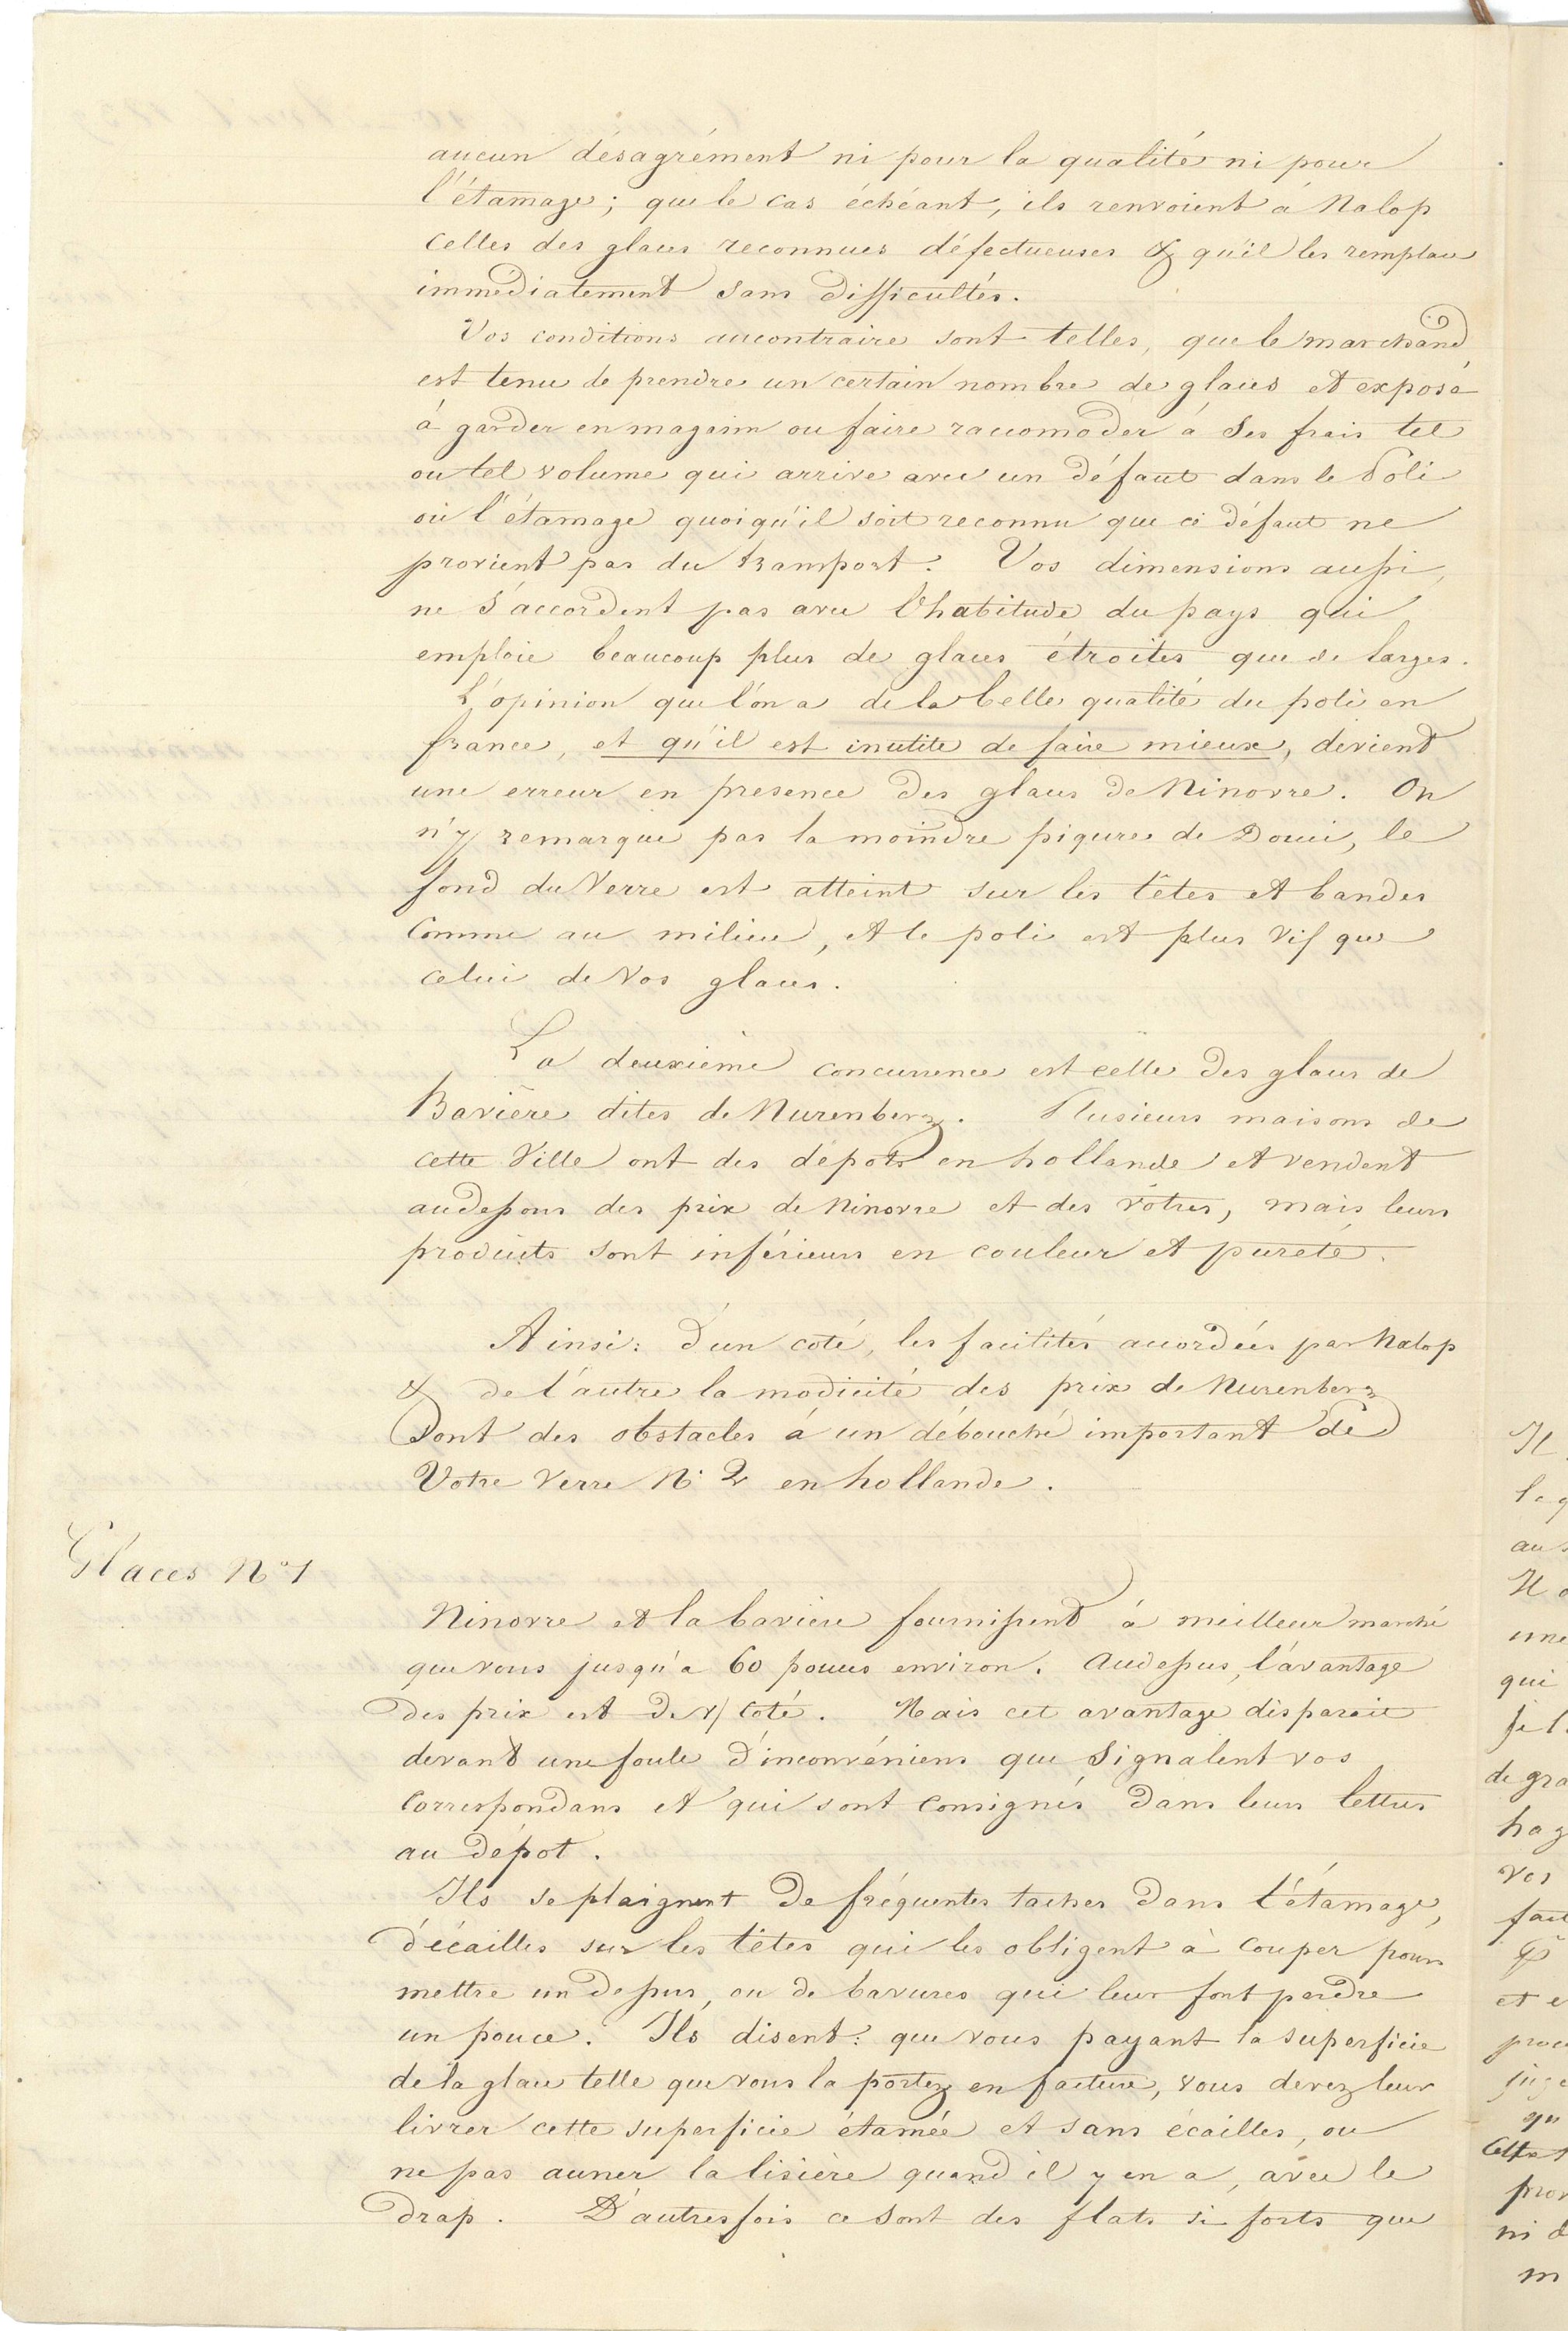 aucun désagrément ni pour la qualité ni pour
l'étamage; que le cas échéant, ils renvoient à Nalop
celles des glaces reconnues défectueuses & qu'il les remplace
immédiatement sans difficultés.
Vos conditions aucontraire sont telles, que le marchand
est tenu de prendre un certain nombre de glaces et exposé
à garder en magasin ou faire raccomoder à ses frais tel
ou tel volume qui arrive avec un défaut dans le Poli
où l'étamage quoiqu'il soit reconnu que ce défaut ne
provient pas du transport. Vos dimensions aussi,
ne s'accordent pas avec l'habitude du pays qui
emploie beaucoup plus de glaces étroites que de larges.
L'opinion que l'on a de la belle qualité du poli en
france, et qu'il est inutile de faire mieux, devient
une erreur en presence des glaces de Ninovre. On
n'y remarque pas la moindre piqure de Douci, le
fond du Verre est atteint sur les têtes et bandes
Comme au milieu, et le poli est plus vif que
celui de Vos glaces.
La deuxième concurrence est celle des glaces de
Bavière dites de Nurenberg. Plusieurs maisons de
cette Ville ont des dépots en hollande et vendent
audessous des prix de Ninovre et des vôtres, mais leurs
produits sont inférieurs en couleur et pureté.
Ainsi: d'un coté, les facilités accordées par Nalop
& de l'autre la modicité des prix de Nurenberg
Sont des obstacles à un débouché important de
Votre Verre N° 2 en hollande.
Glaces N° 1
Ninovre et la bavière fournissent à meilleur marché
que vous jusqu'a 60 pouces environ. Audessus, l'avantage
des prix est de v/ Coté. Mais cet avantage disparait
devant une foule d'inconvéniens que Signalent vos
Correspondans et qui sont Consignés dans leurs lettres
au dépot.
Ils se plaignent de fréquentes taches dans l'étamage,
d'écailles sur les têtes qui les obligent à Couper pour
mettre un dessus, ou de bavures qui leur font perdre
un pouce. Ils disent: que vous payant la superficie
de la glace telle que vous la portez en facture, vous devez leur
livrer cette superficie étamée et sans écailles, ou
ne pas auner la lisière quand il y en a, avec le
drap. D'autresfois ce sont des flats si forts que